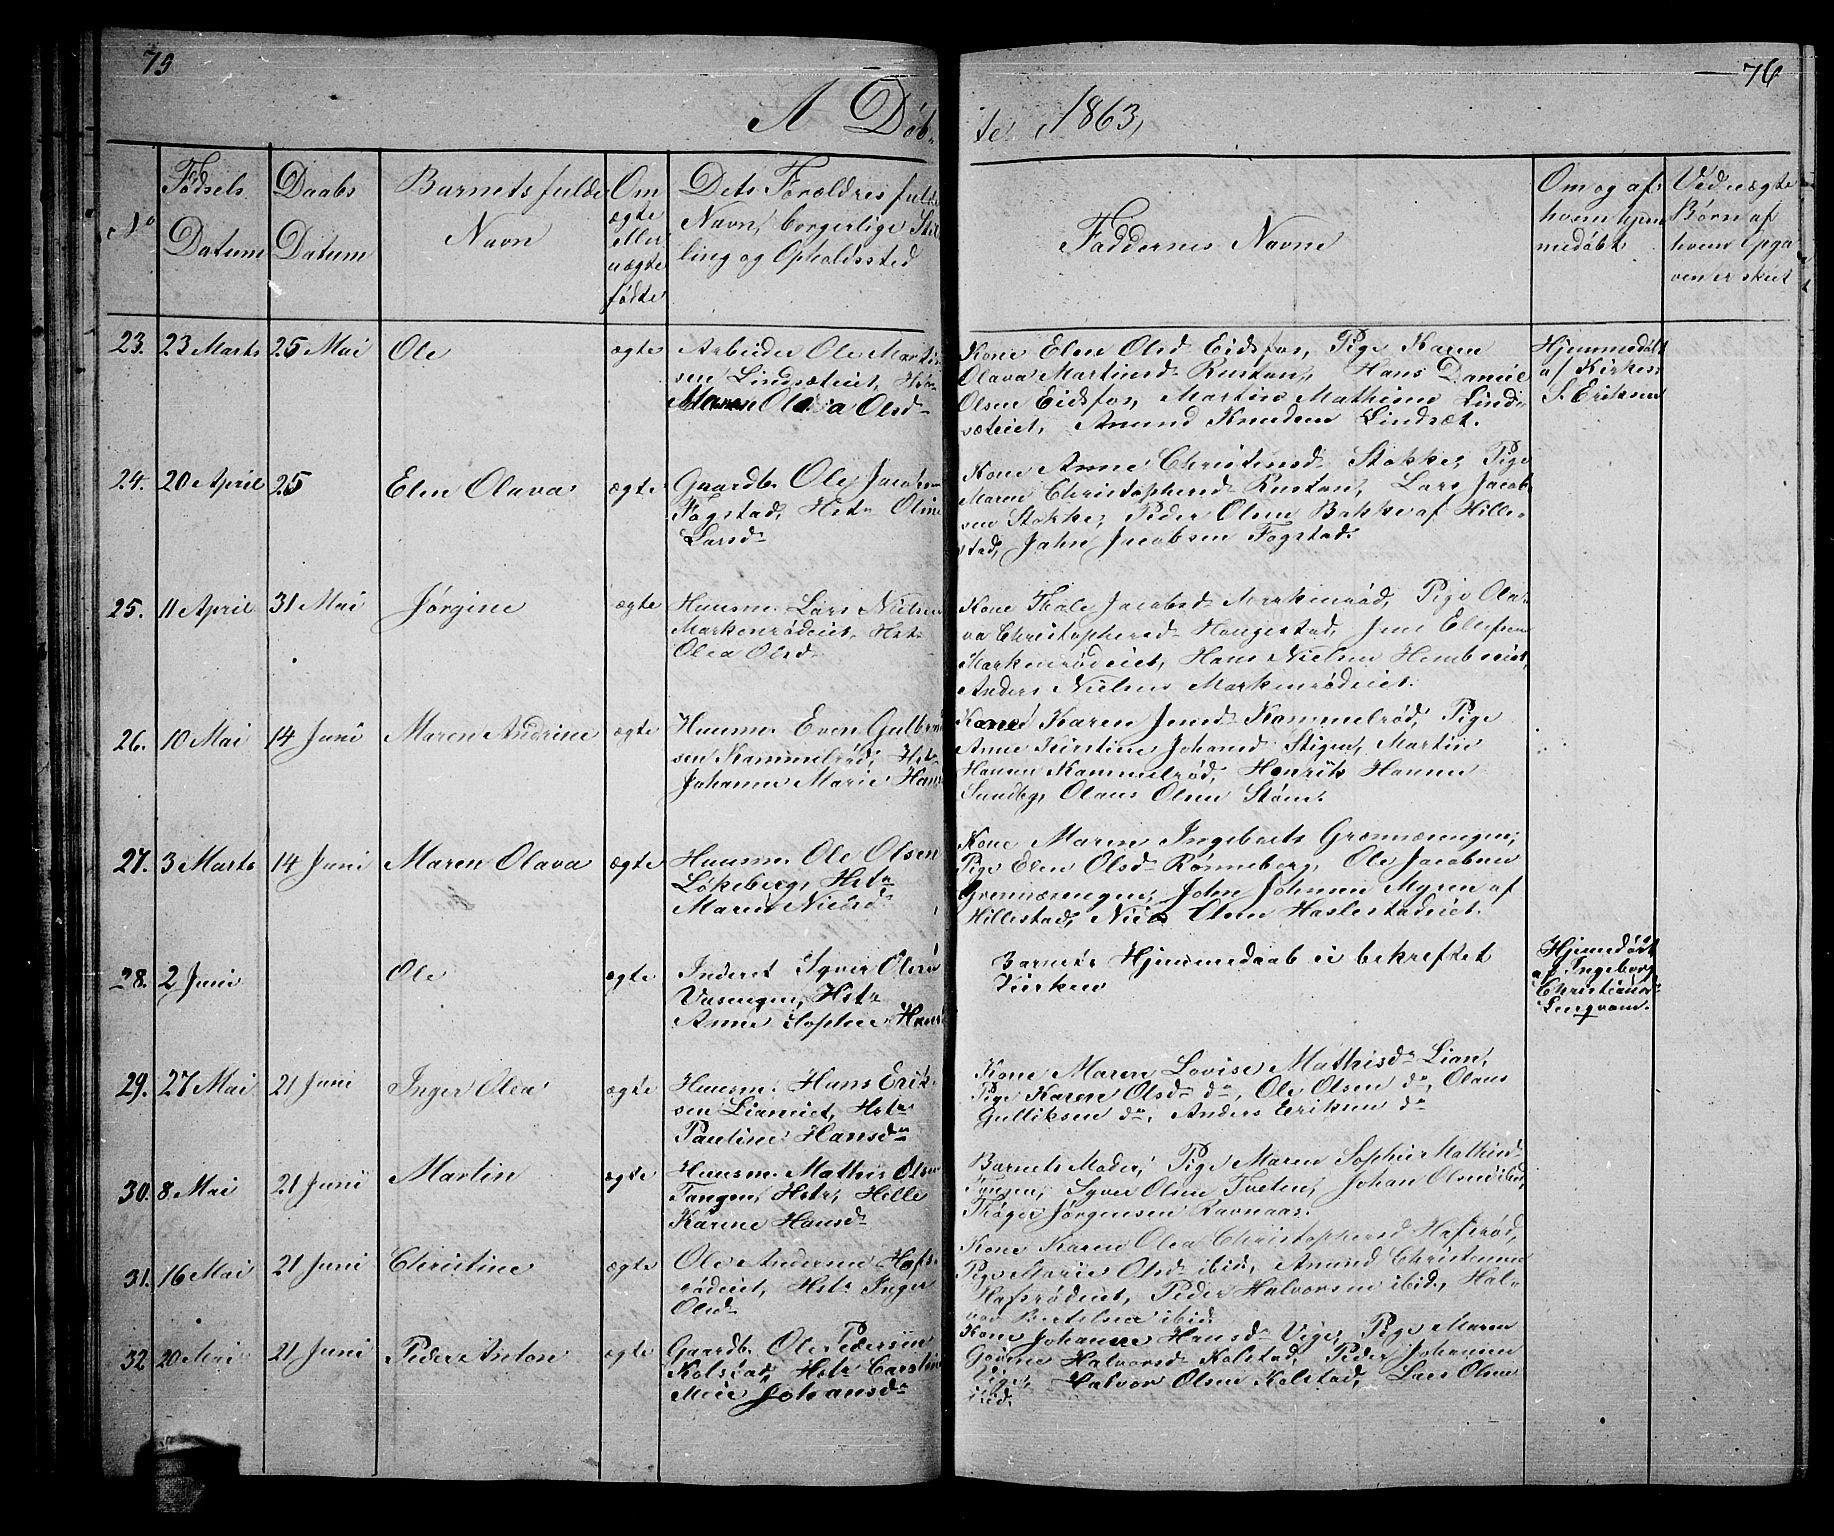 75
76
A Døb-
te 1863,
No
Fødsels Datum
Daabs Datum
Barnets fulde Navn
Om ægte eller uægte fødte
Dets Forældres fulde
Navn, borgerlige Stil
ling og Opholdssted
Faddernes Navne
Om og af
hvem hjem
medøbt
Ved uægte
Børn af
hvem Opga
ven er skeet
23. 23 Marts 25 Mai Ole ægte Arbeider Ole Martin
sen Lindsæteiet, Hst
Maren Olava Olsd
Kone Elen Olsd Eidsfos, Pige Karen
Olava Martinsd Rustan, Hans Daniel
Olsen Eidsfos, Martin Mathisen Lind
sæteiet, Amund Knudsen Lindsæt.
Hjemmedøbt
af Kirkes:
S. Eriksen
24. 20 April 25 Elen Olava ægte Gaardb. Ole Jacobsen
Fogstad, Hst Oline
Larsd
Kone Anne Christensd Stokke, Pige
Maren Christophersd Rustan, Lars Jacob
sen Stokke, Peder Olsen Bakke af Hille-
stad, John Jacobsen Fogstad.
25. 11 April 31 Mai Jørgine ægte Huusm. Lars Nielsen
Markenrødeiet, Hst
Olea Olsd
Kone Thale Jacobsd Markenrød, Pige Ola-
va Christophersd Haugestad, Jens Elefsen
Markenrødeiet, Hans Nielsen
Anders Nielsen Markenrødeiet.
26. 10 Mai 14 Juni Maren Andrine ægte Huusm. Even Gulbrand
sen Kammelrød, Hst
Johanne Marie Hans
Kone Karen Jensd Kammelrød, Pige
Anne Kirstine Johansd Stigen, Martin
Hansen Kammelrød, Henrik Hansen
Sundby, Olaus Olsen
27. 3 Marts 14 Juni Maren Olava ægte Huusm. Ole Olsen
Løkeberg, Hst
Maren Nielsd
Kone Maren Ingebrets Grønnærengen,
Pige Elen Olsd Rønneberg, Ole Jacobsen
Grønnærengen, John Johnsen Myren af
Hillestad, Niels Olsen Haslestadeiet.
28. 2 Juni Ole ægte Inderst Syver Olsen
Vasengen, Hst
Anne Sophie Hans
Barnets Hjemmedaab ei bekreftet
Kirken
Hjemmedøbt
af Ingeborg
Christians
29. 27 Mai 21 Juni Inger Olea ægte Huusm. Hans Erik
sen Lianeiet, Hst
Pauline Hansd
Kone Maren Lovise Mathisd Lian,
Pige Karen Olsd do, Ole Olsen do, Olaus
Gulliksen do, Anders Eriksen do
30. 8 Mai 21 Juni Martin ægte Huusm. Mathis Olsen
Tangen, Hst, Helle
Karine Hansd
Barnets Moder, Pige Maren Sophie Mathisd
Tangen, Syver Olsen Tveten, Johan Olsen ibid,
Thøger Jørgensen Ravnaas.
31. 16 Mai 21 Juni Christine ægte Ole Andersen Hafs
rødeiet, Hst Inger
Olsd
Kone Karen Olea Christophersd Hafsrød,
Pige Marie Olsd ibid, Amund Christensen
Hafsrødeiet, Peder Halvorsen ibid, Hal
vor Bertelsen ibid.
32 20 Mai 21 Juni Peder Anton ægte Gaardb. Ole Pedersen
Kolstad, Hst Carstine
Marie Johansd
Kone Johanne Hansd Vige, Pige Maren
Halvorsd Kolstad, Peder Johansen
Vige, Halvor Olsen Kolstad, Lars Olsen
ibid.